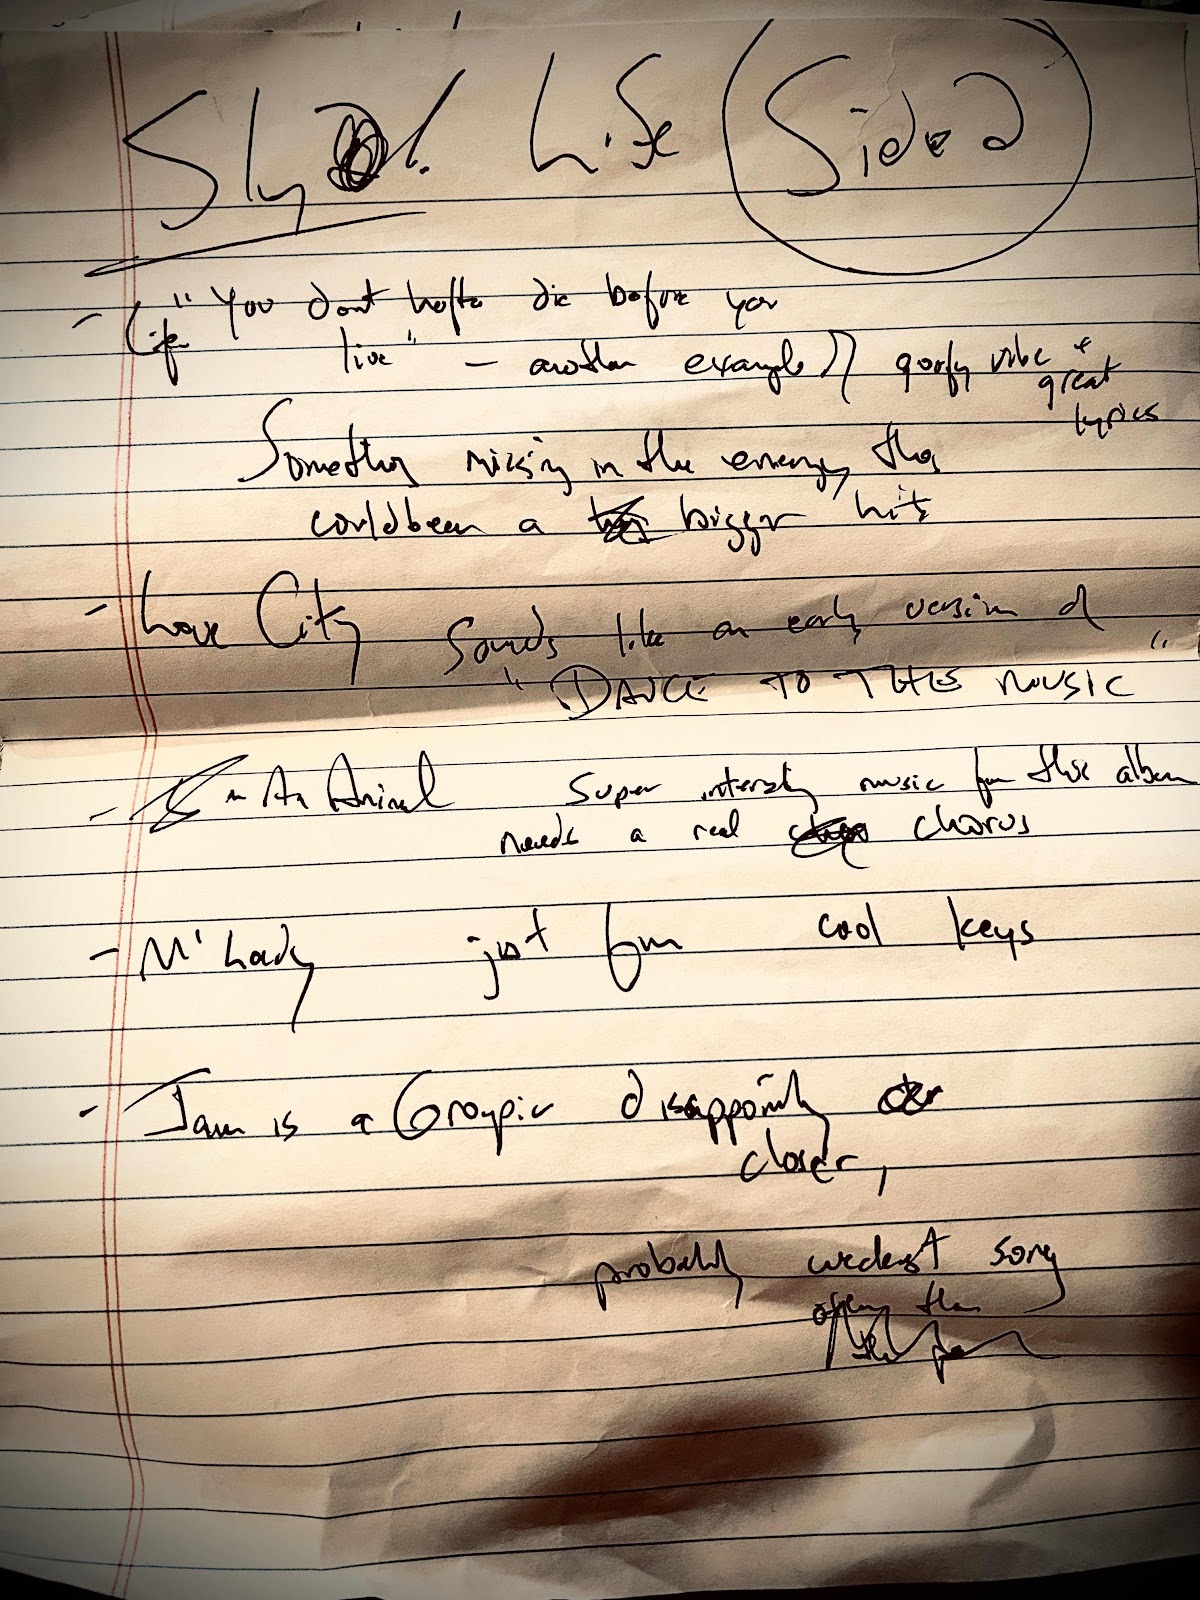 Sly Life Side 2
- Life "You dont hafta die before you
live" - another example of goofy vibe +
great
lyrics
Something missing in the energy tho
couldbeen a bigger hits
- Love City Sounds like an early version of
"DANCE TO THE MUSIC"
- I'm An Animal Super interesting music for this album
needs a real chorus
- M'Lady just fun cool keys
- Jam is a Groupie disappointing
closer,
probably weakest song